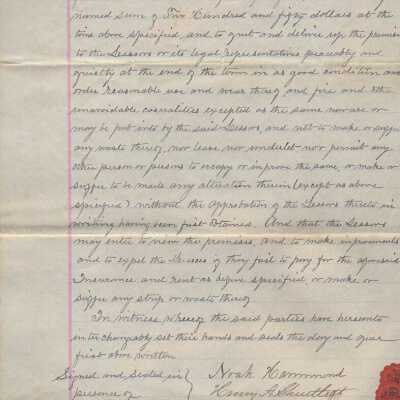 named sum of Five Hundred and fifty dollars at the
time above specified, and to quit and deliver up the premises
to the Lessors or its legal representatives peaceably and
quietly at the end of the term in as good condition and
order reasonable use and wear thereof and fire and other
unavoidable casualities excepted as the same now are or
may be put into by the said Lessors, and not to make or suffer
any waste thereof, nor lease nor underlet nor permit any
other person or persons to occupy or improve the same, or make or
suffer to be made any alteration therein (except as above
specified) without the approbation of the Lessors thereto in
writing having been first obtained. And that the Lessors
may enter to view the premises, and to make improvements
and to expel the Lessees if they fail to pay for the aforesaid
Insurance and rent as before specified or make or
suffer any strip or waste thereof
In witness whereof the said parties have hereunto
interchangably set their hands and seals the day and year
first above written
Signed and Sealed in
presence of
Noah Hammond
Henry A.